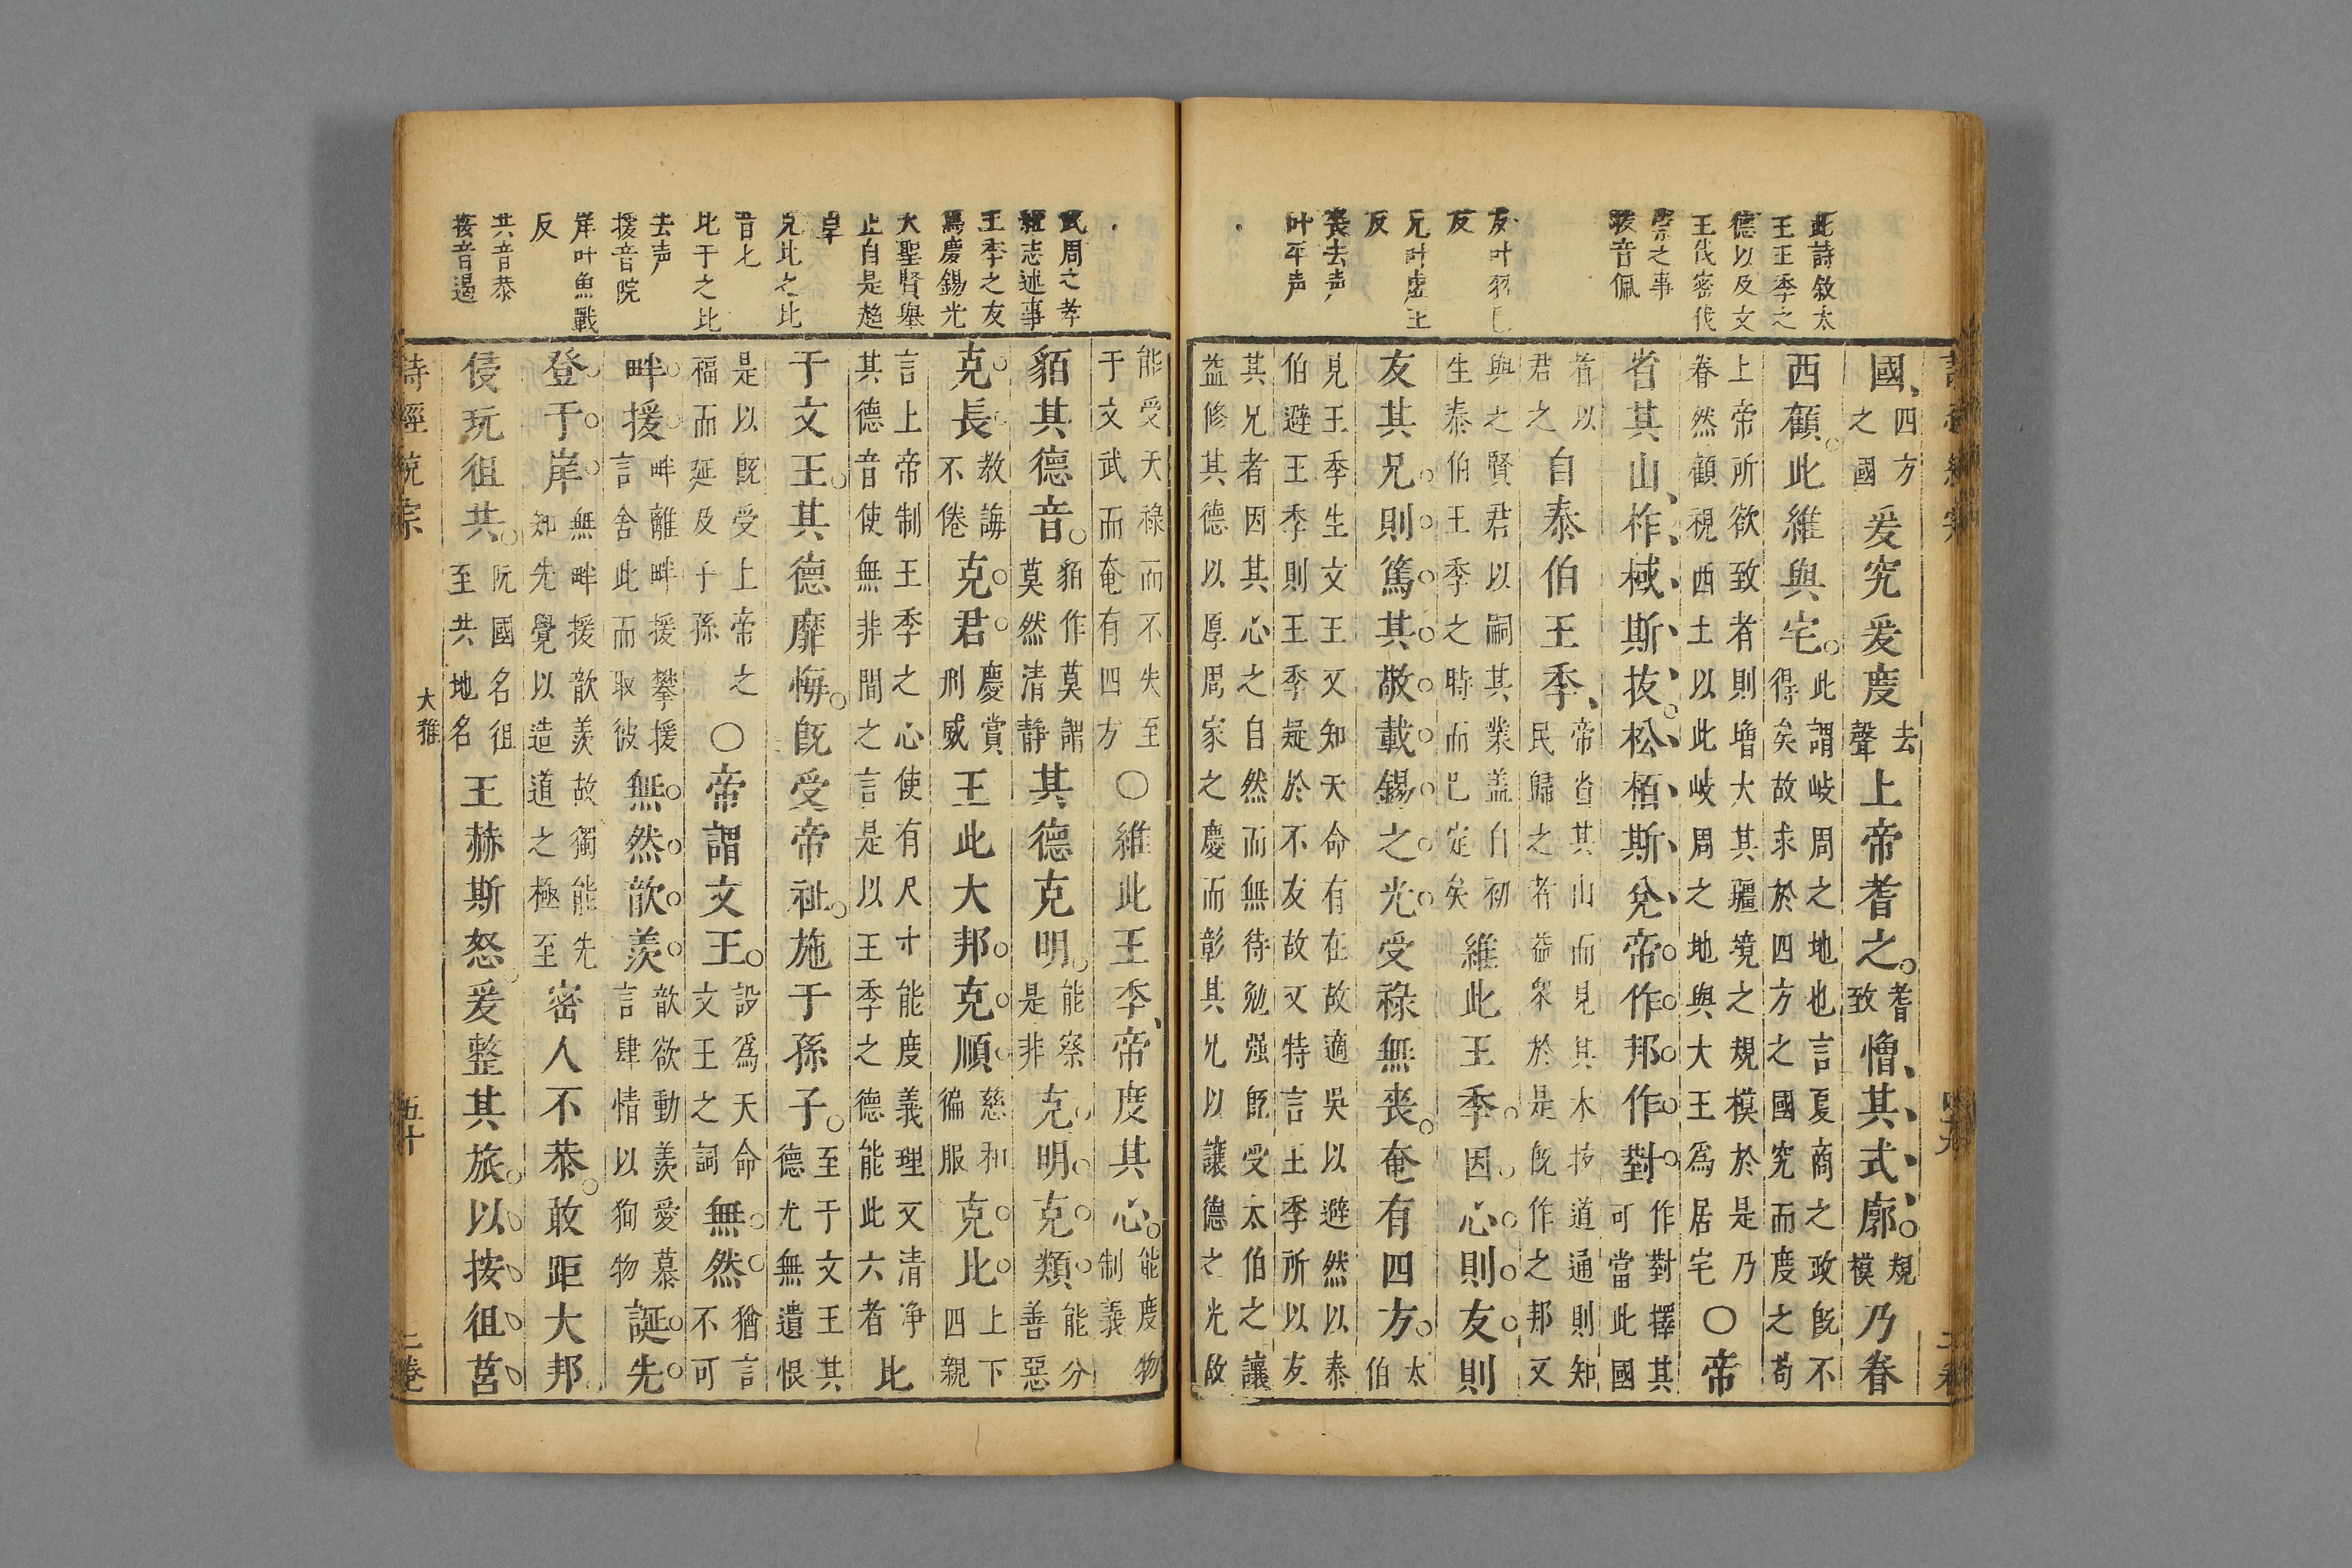 此詩敘太
王王季之
德以及文
王伐密伐
崇之事
拔音佩
友叶羽已
反
兄叶虛王
反
喪去声
叶平声
國四方之國爰究爰度去聲上帝耆之耆致憎其式廓規模乃眷
西顧此維與宅此謂岐周之地也言夏商之政既不得矣故求於四方之國究而度之苟
上帝所欲致者則增大其疆境之規模於是乃眷然顧視西土以此岐周之地與大王為居宅○帝
省其山柞棫斯拔松栢斯兌帝作邦作對作對擇其可當此國
者以君之自泰伯王季帝省其山而見其木拔道通則知民歸之者益衆於是既作之邦又
與之賢君以嗣其業盖自初生泰伯王季之時而已定矣維此王季因心則友則
友其兄則篤其敬載錫之光受祿無喪奄有四方太伯
見王季生文王又知天命有在故適吳以避然以泰伯避王季則王季疑於不友故又特言王季所以友
其兄者因其心之自然而無待勉强既受太伯之讓益修其德以厚周家之慶而彰其兄以讓德之光故
四十九
二卷
武周之孝
繼志述事
王季之友
篤慶錫光
大聖賢舉
止自是超
卓
兄比之比
音匕
比于之比
去声
援音院
岸叶魚戰
反
共音恭
按音遏
能受天祿而不失至于文武而奄有四方○維此王季帝度其心能度物制義
貊其德音貊作莫謂莫然清静其德克明能察是非克明克類能分善惡
克長教誨不倦克君慶賞刑威王此大邦克順慈和徧服克比上下四親
言上帝制王季之心使有尺寸能度義理又清净其德音使無非間之言是以王季之德能此六者比
于文王其德靡悔既受帝祉施于孫子至于文王其德尤無遺恨
是以既受上帝之福而延及子孫○帝謂文王設爲天命文王之詞無然猶言不可
畔援畔離畔援攀援言舍此而取彼無然歆羨歆欲動羨愛慕言肆情以狥物誕先
登于岸無畔援歆羨故獨能先知先覺以造道之極至密人不恭敢距大邦
侵阮徂共阮國名徂至共地名王赫斯怒爰整其旅以按徂莒
詩經説宗
大雅
五十
二卷